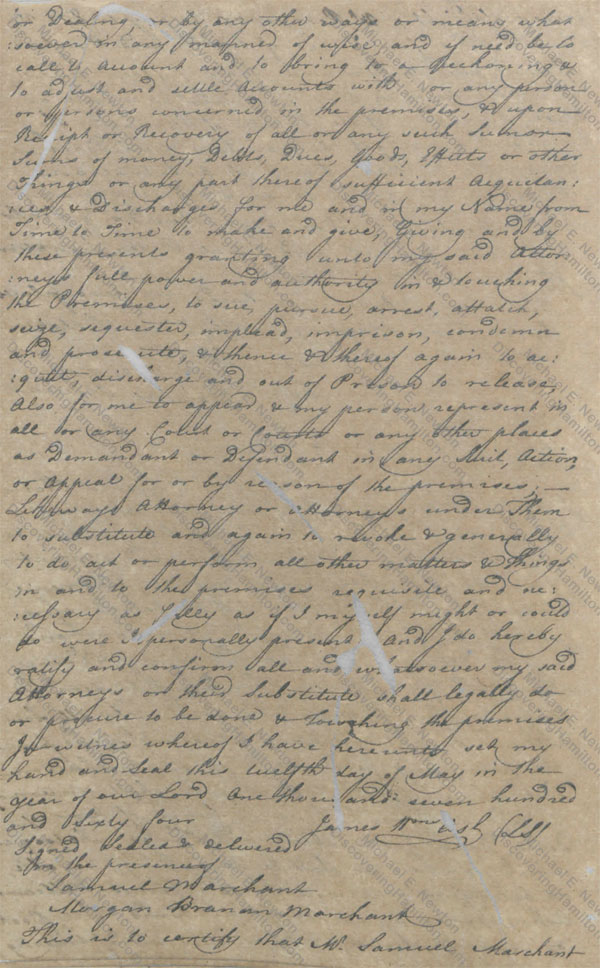 or Dealing or by any other ways or means what
:soever in any manner of wise and if need be to
call to Account and to bring to a reckoning &
to adjust and settle Accounts with or any person
or persons concerned in the premises, & upon
Receipt or Recovery of all or any such Sum or
Sums of money, Debts, Dues, Goods, Effects or other
Things or any part thereof sufficient Acquetan:
:ces & Discharges for me and in my Name from
Time to Time to make and give, Giving and by
these presents granting unto my said Attor
:neys full power and authority in & touching
the Premises, to sue, pursue, arrest, attatch,
seize, sequester, implead, imprison, condemn
and prosecute, & thence & thereof again to ac:
:quit, discharge and out of Prison to release,
Also for me to appear & my person represent in
all or any Court or Courts or any other places
as Demandant or Defendant in any Suit, Action,
or Appeal for or by reason of the premises; —
Attorney or Attorneys under Them
to substitute and again to revoke & generally
to do act or perform all other matters & Things
in and to the premises requisite and ne:
:cessary as fully as if I myself might or could
do were I personally present And I do hereby
ratify and confirm all and whatsoever my said
Attorneys or their Substitute shall legally do
or procure to be done & touching the premises
In witnes whereof I have hereunto set my
hand and Seal this twelfth day of May in the
year of our Lord One thousand seven hundred
and Sixty four James (LS)
Signed Sealed & delivered
In the presence of
Samuel Marchant
Morgan Branan Marchant
This is to certify that Mr. Samuel Marchant